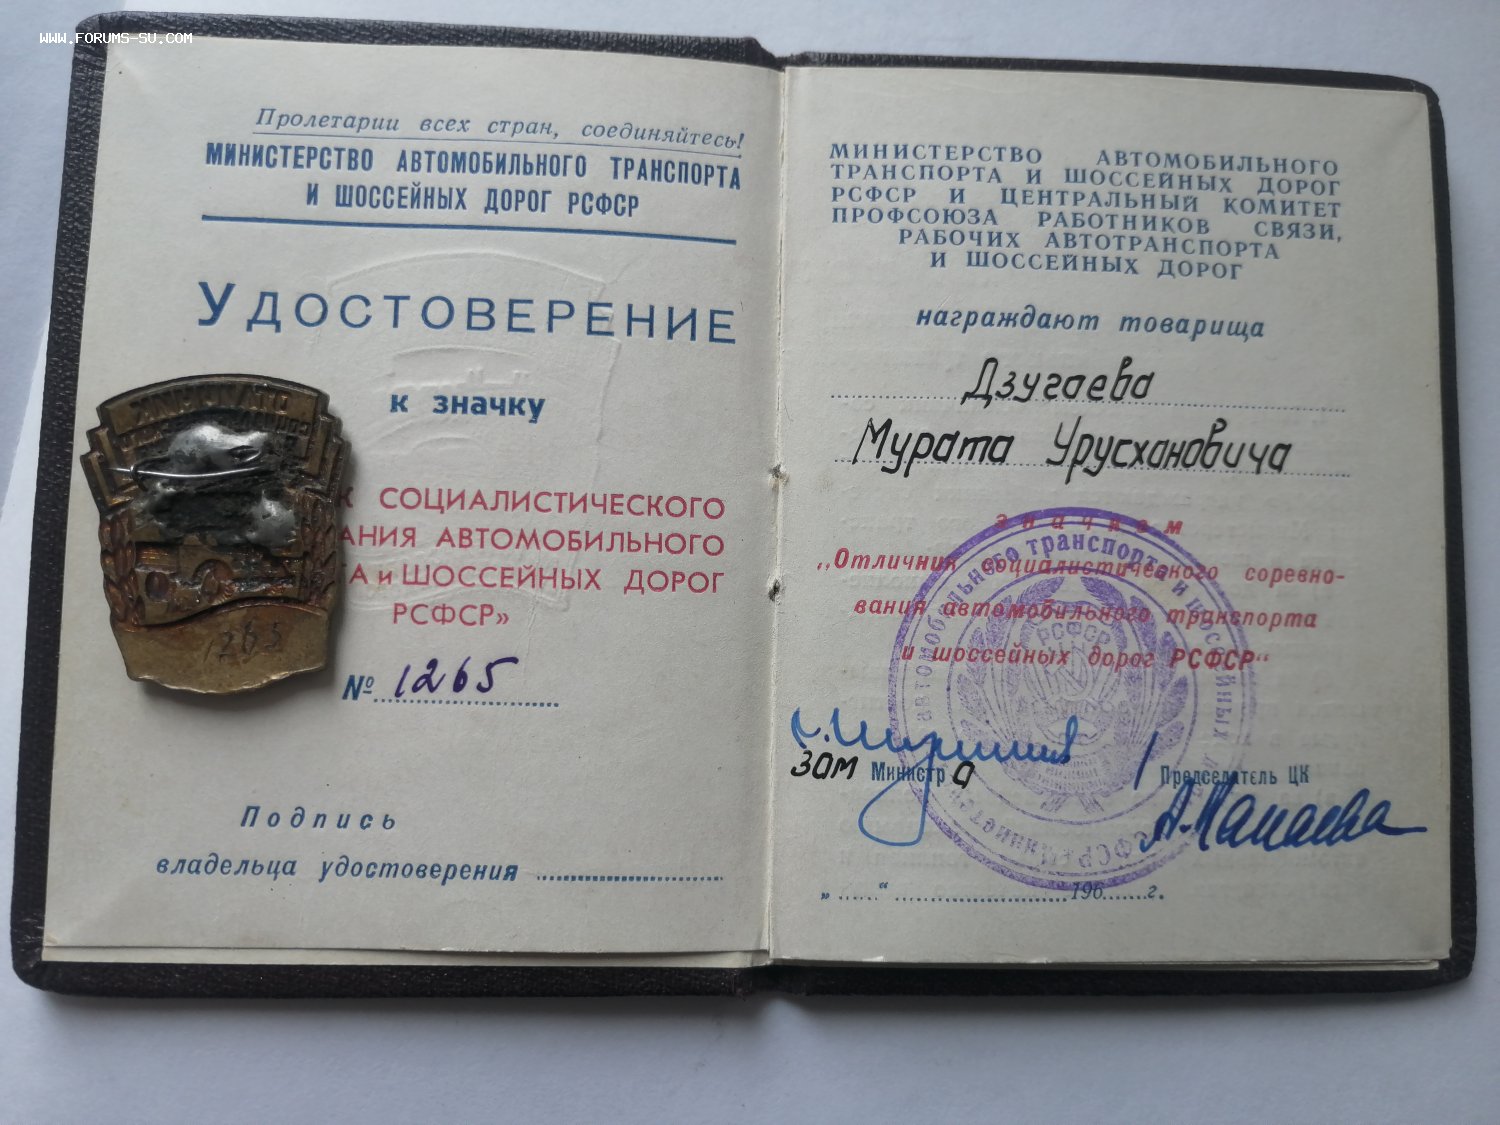 www.forums-su.com
Пролетарии всех стран, соединяйтесь!
МИНИСТЕРСТВО АВТОМОБИЛЬНОГО ТРАНСПОРТА
И ШОССЕЙНЫХ ДОРОГ РСФСР
УДОСТОВЕРЕНИЕ
к значку
К СОЦИАЛИСТИЧЕСКОГО
АНИЯ АВТОМОБИЛЬНОГО
ТА и ШОССЕЙНЫХ ДОРОГ
РСФСР»
№ 1265
1265
Подпись
владельца удостоверения
МИНИСТЕРСТВО АВТОМОБИЛЬНОГО
ТРАНСПОРТА И ШОССЕЙНЫХ ДОРОГ
РСФСР И ЦЕНТРАЛЬНЫЙ КОМИТЕТ
ПРОФСОЮЗА РАБОТНИКОВ СВЯЗИ,
РАБОЧИХ АВТОТРАНСПОРТА
И ШОССЕЙНЫХ ДОРОГ
награждают товарища
Дзугаева
Мурата Урусхановича
значком
„Отличник социалистического соревно-
вания автомобильного транспорта
и шоссейных дорог РСФСР“
зам Министра
Председатель ЦК
„ “ 196 г.
автомобильного транспорта и шоссейных
РСФСР